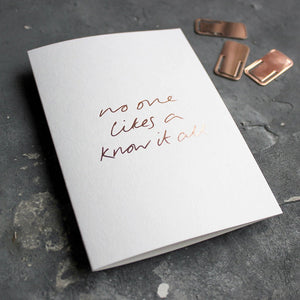 no one
likes a
know it all